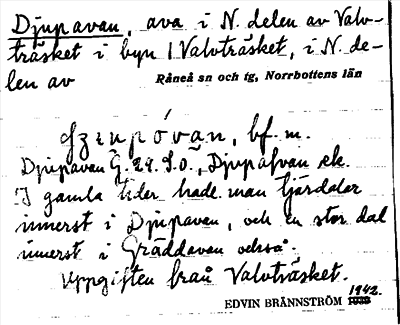 Djupavan, ava i N. delen av Valv-
träsket i byn Valvträsket, i N. de-
len av
Råneå sn och tg, Norrbottens län
bf. m.
Djupavan G. 24. S.O., Djupafvan ek.
I gamla tider hade man tjärdalar
innerst i Djupavan, och en stor dal
innerst i Gräddavan också.
Uppgiften från Valvträsket.
1942.
EDVIN BRÄNNSTRÖM 1939